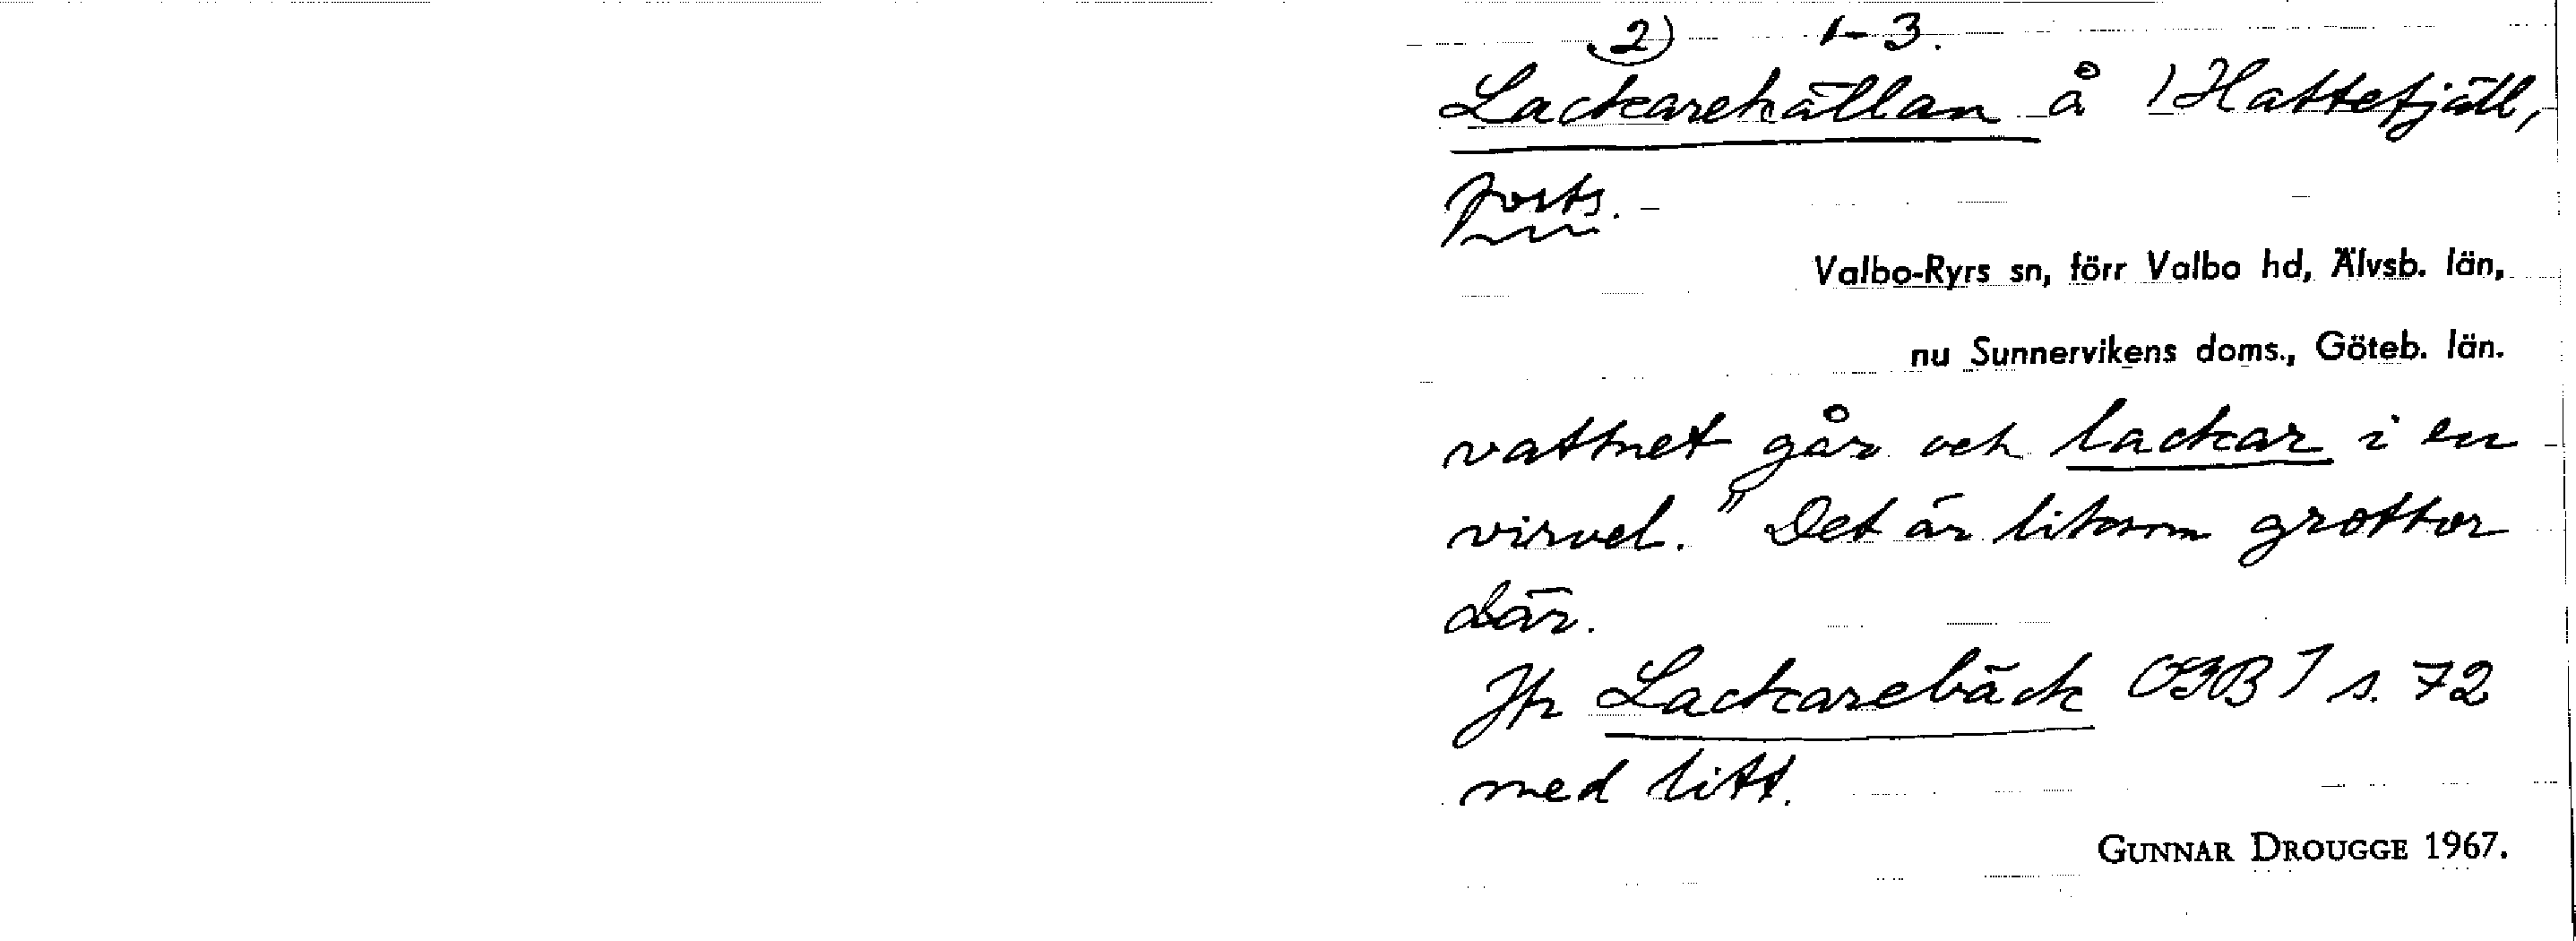 2) 1-3.
Lackarekällan å 1 Hattefjäll,
forts.
Valbo-Ryrs sn, förr Valbo hd, Älvsb. län,
nu Sunnervikens doms., Göteb. län.
vattnet går och lackar i en
virvel." Det är liksom grottor
där.
Jfr Lackarebäck OGB I s. 72
med litt.
GUNNAR DROUGGE 1967.